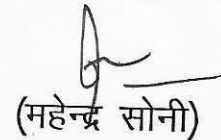 (महेन्द्र सोनी)